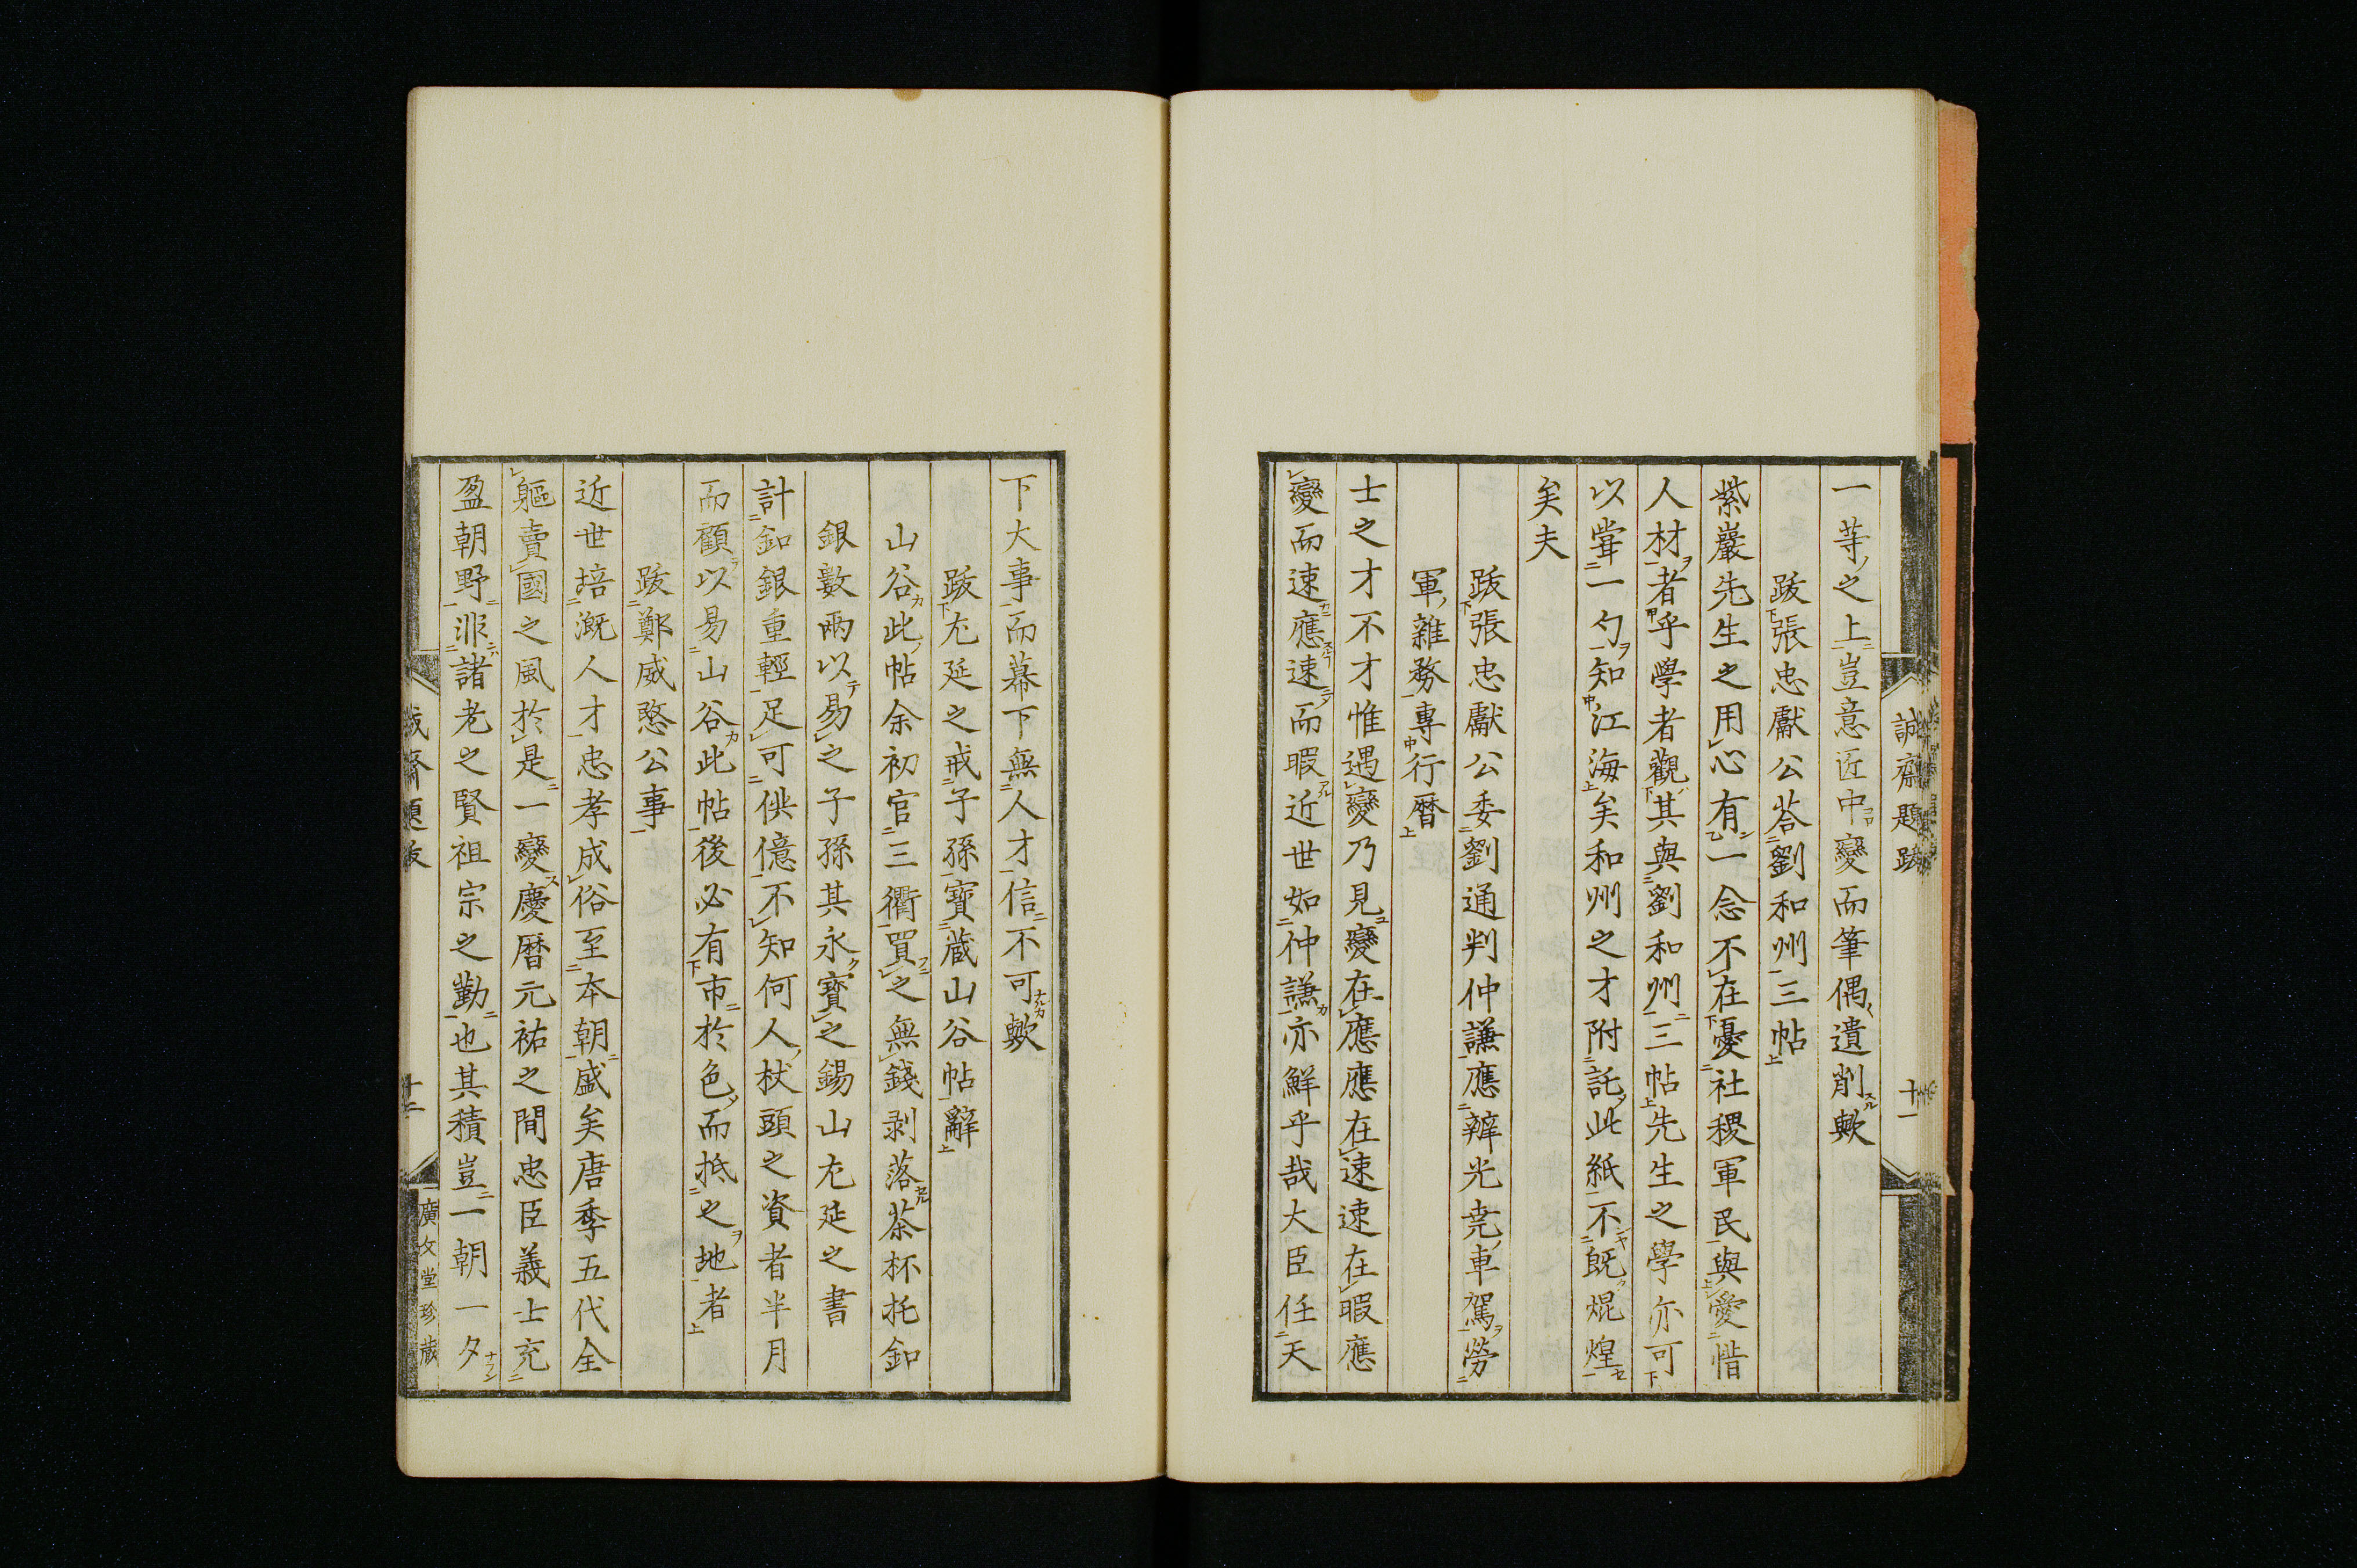 誠齋題跋
十一
一等之上豈意匠中變而筆偶遺削歟
跋張忠獻公荅劉和州三帖
紫巖先生之用心有一念不在憂社稷軍民與愛惜
人材者乎學者觀其與劉和州三帖先生之學亦可
以甞一勺知江海矣和州之才附託此紙不既焜煌
矣夫
跋張忠獻公委劉通判仲謙應辦光堯車駕勞
軍雜務專行曆
士之才不才惟遇變乃見變在應應在速速在暇應
變而速應速而暇近世如仲謙亦鮮乎哉大臣任天
下大事而幕下無人才信不可歟
跋尤延之戒子孫寶藏山谷帖辭
山谷此帖余初官三衢買之無錢剥落茶杯托釦
銀數兩以易之子孫其永寶之錫山尤延之書
計釦銀重輕足可供億不知何人杖頭之資者半月
而顧以易山谷此帖後必有市於色而抵之地者
跋鄭威愍公事
近世培溉人才忠孝成俗至本朝盛矣唐季五代全
軀賣國之風於是一變慶曆元祐之間忠臣義士充
盈朝野非諸老之賢祖宗之勤也其積豈一朝一夕
誠齋題跋
十二
廣文堂珍藏